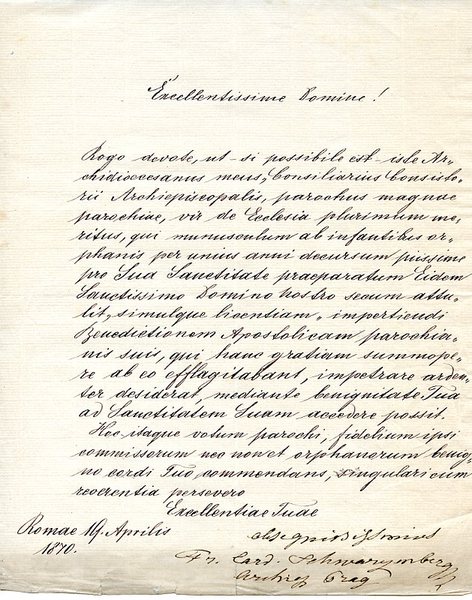 Excellentissime Domine!
Rogo devote, ut - si possibile est - iste Ar-
chidioecesanus meus, Consiliarius Consisto-
rii Archiepiscopalis, parochus magnae
parochiae, vir de Ecclesia plurimum me-
ritus, qui munusculum ab infantibus or-
phanis per unius anni decursum piissime
pro Sua Sanctitate praeparatum Eidem
Sanctissimo Domino Nostro secum attu-
lit, simulque licentiam, impertiendi
Benedictionem Apostolicam parochia-
nis suis, qui hanc gratiam summope-
re ab eo efflagitabant, impetrare arden-
ter desiderat, mediante benignitate Tua
ad Sanctitatem Suam accedere possit.
Hoc itaque votum parochi, fidelium ipsi
commissorum nec non et orphanorum benig-
no cordi Tuo commendans, singulari cum
reverentia persevero
Excellentiae Tuae
Romae 19. Aprilis
1870.
Fr. Card. Schwarzenberg
Archiep Prag